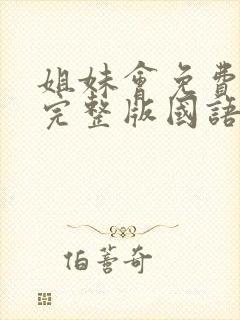 姐妹會免費
完整版國語
伯蓍奇